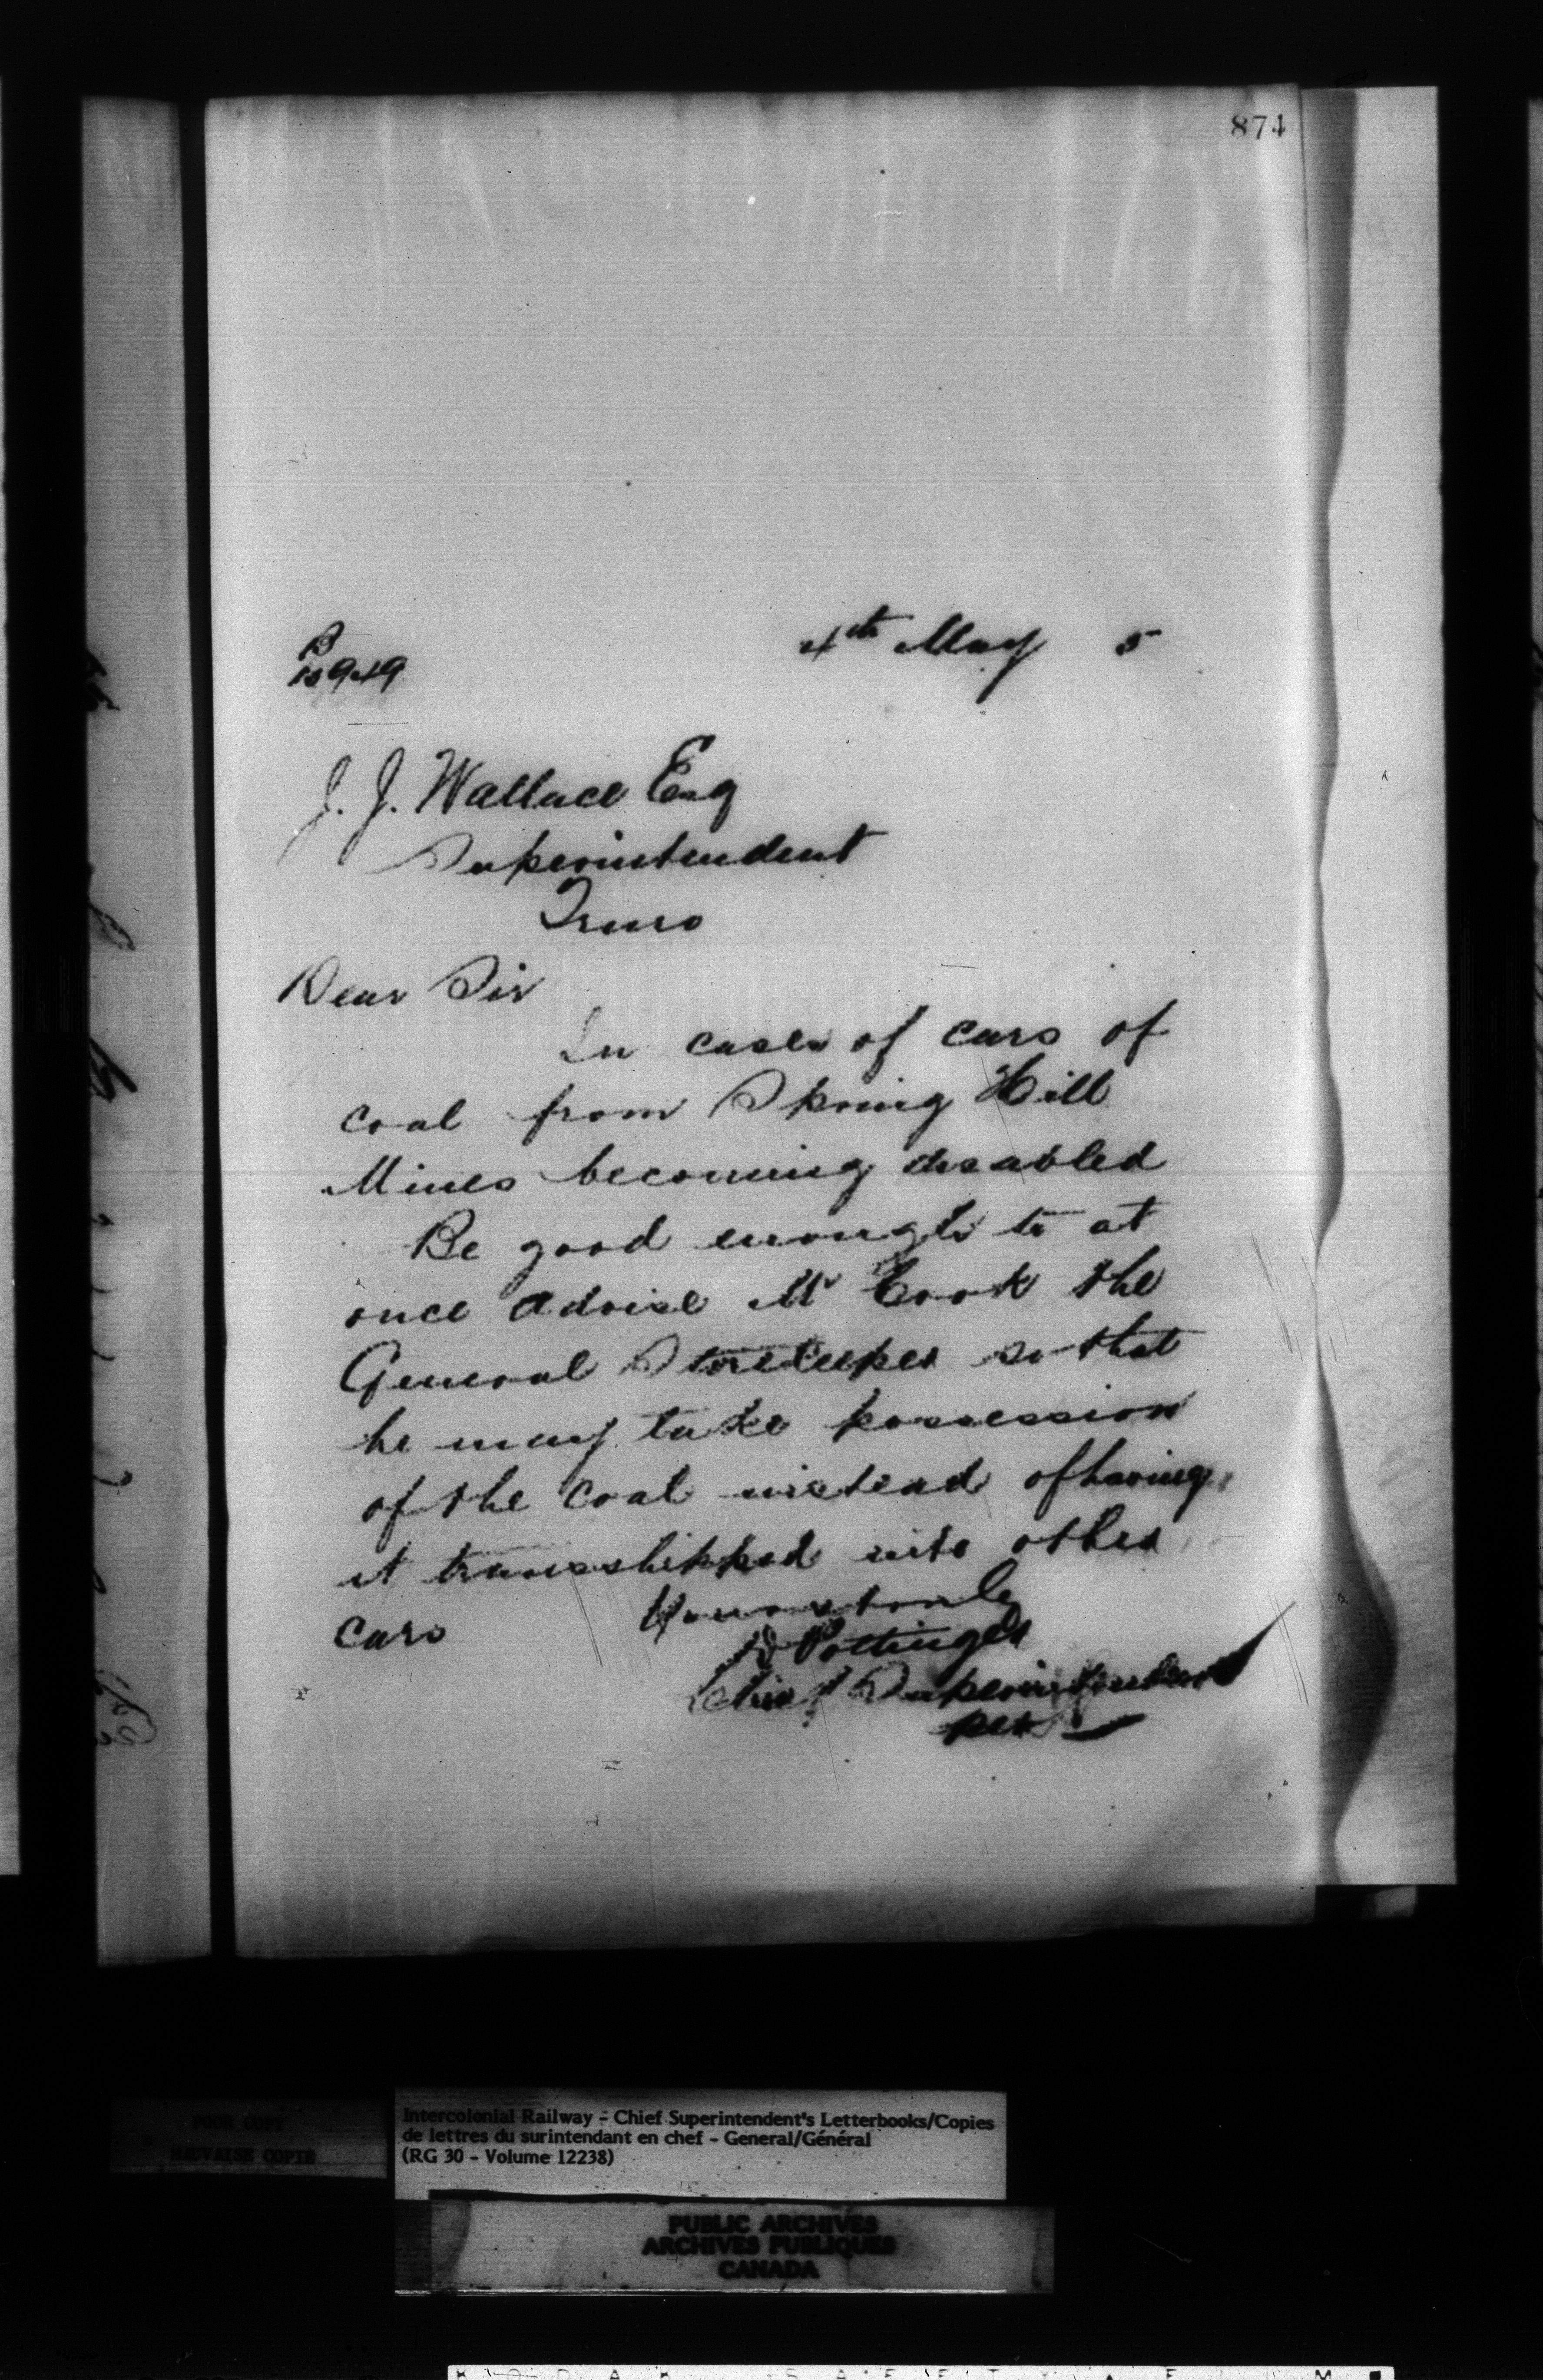 874
4th May 5
B
10949
J. J. Wallace Esq
Superintendent
Truro
Dear Sir
In cases of cars of
coal from Spring Hill
Mines becoming disabled
Be good enough to at
once advise Mr Cook the
General Storekeeper so that
he may take possession
of the coal instead of having
it transshipped into other
cars
Yours truly
D Pottinger
Chief Superintendent
per
POOR COPY
MAUVAISE COPIE
Intercolonial Railway - Chief Superintendent's Letterbooks/Copies
de lettres du surintendant en chef - General/Général
(RG 30 - Volume 12238)
PUBLIC ARCHIVES
ARCHIVES PUBLIQUES
CANADA